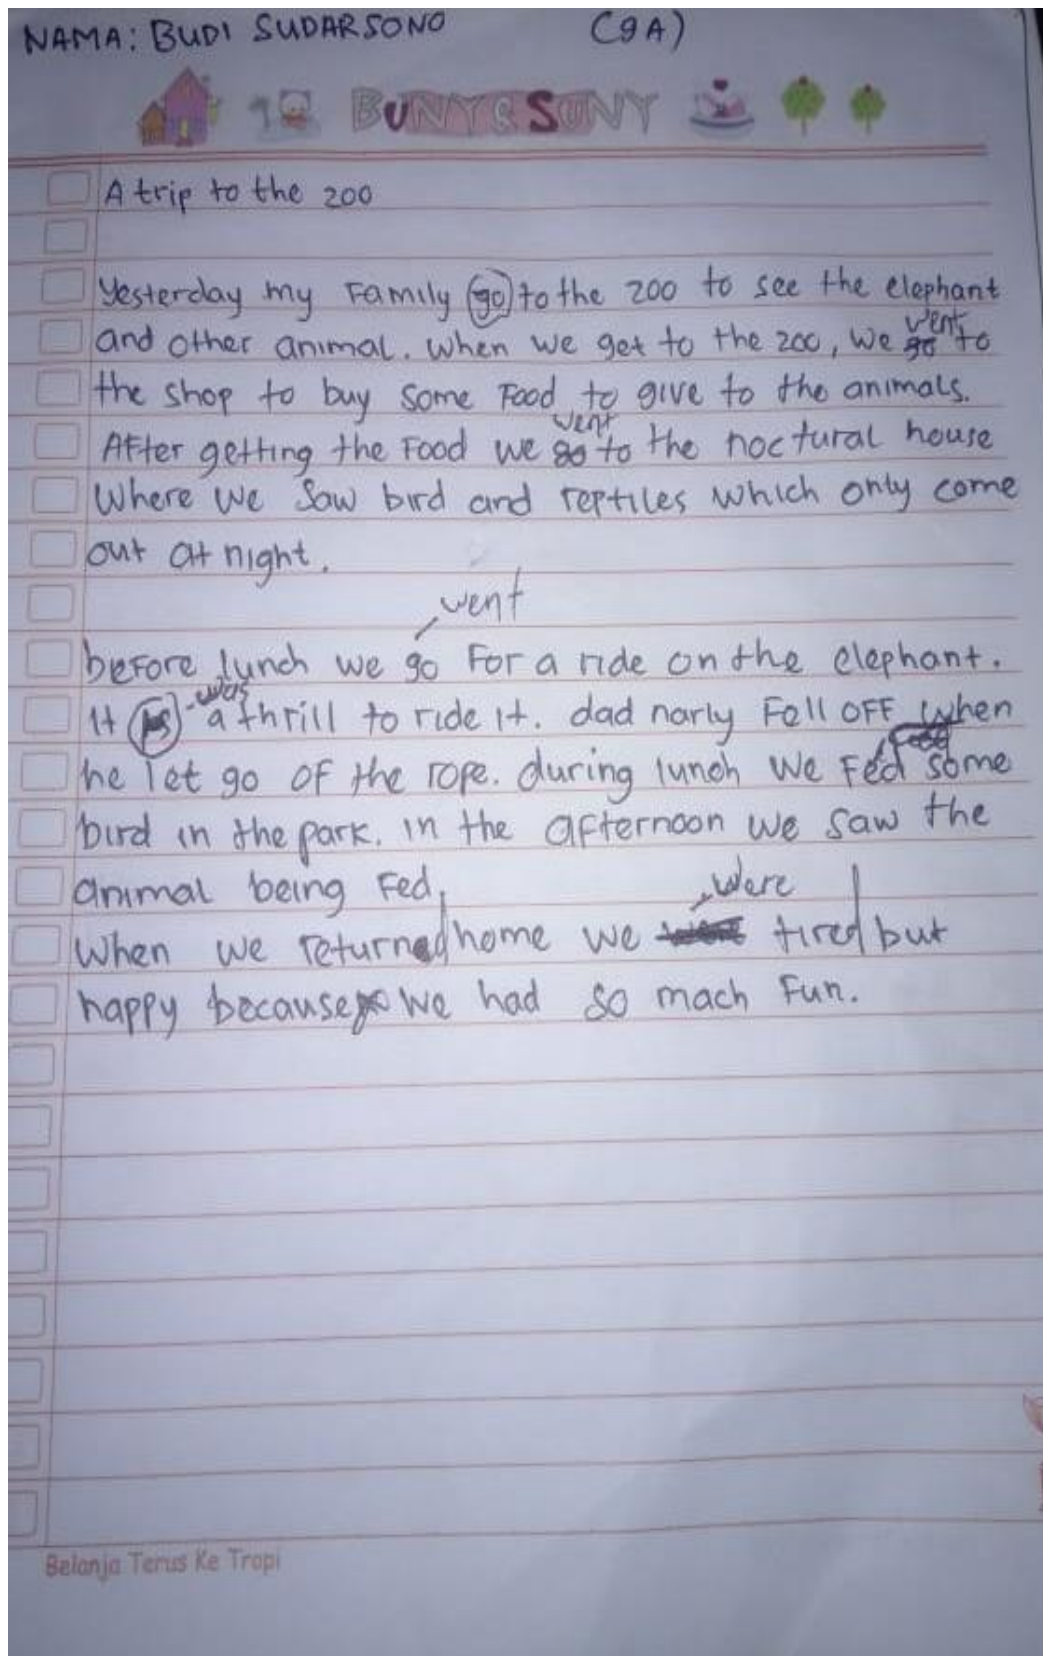 NAMA: BUDI SUDARSONO (9A)
BUNY & SUNY
A trip to the zoo
Yesterday my Family go to the zoo to see the elephant
and other animal. When we get to the zoo, we go went to
the shop to buy some Food to give to the animals.
AFter getting the Food we go went to the noctural house
Where we saw bird and reptiles which only come
out at night.
went
beFore lunch we go For a ride on the elephant.
It is - was a thrill to ride it. dad narly Fell OFF when
he let go OF the rope. during lunch we Fed some
bird in the park. in the aFternoon we saw the
animal being Fed.
were
When we returned home we tired but
happy because we had so mach Fun.
Belanja Terus Ke Tropi